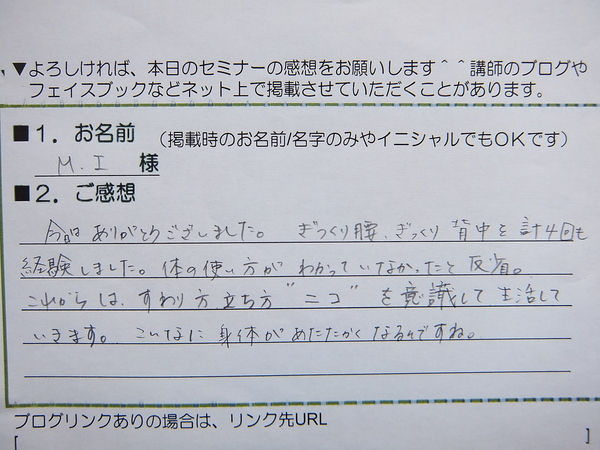 ▼よろしければ、本日のセミナーの感想をお願いします^^講師のブログや
フェイスブックなどネット上で掲載させていただくことがあります。
■1．お名前 （掲載時のお名前/名字のみやイニシャルでもOKです）
M.I 様
■2．ご感想
今日はありがとうございました。 ぎっくり腰、ぎっくり背中を計4回も
経験しました。体の使い方がわかっていなかったと反省。
これからは、すわり方立ち方"ニコ"を意識して生活して
いきます。こんなに身体があたたかくなるんですね。
ブログリンクありの場合は、リンク先URL
[ ]